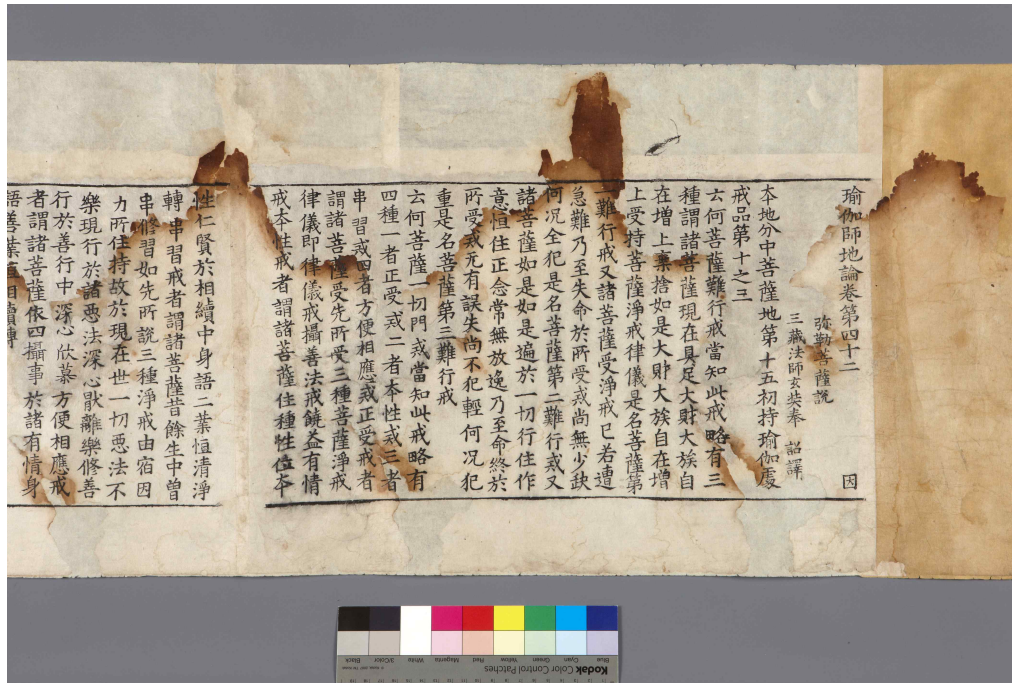 瑜伽師地論卷第四十二 因
弥勒菩薩說
三藏法師玄奘奉 詔譯
本地分中菩薩地第十五初持瑜伽處
戒品第十之三
云何菩薩難行戒當知此戒略有三
種謂諸菩薩現在具足大財大族自
在增上棄捨如是大財大族自在增
上受持菩薩淨戒律儀是名菩薩第
一難行戒又諸菩薩受淨戒已若遭
急難乃至失命於所受戒尚無少缺
何況全犯是名菩薩第二難行戒又
諸菩薩如是如是遍於一切行住作
意恒住正念常無放逸乃至命終於
所受戒无有誤失尚不犯輕何況犯
重是名菩薩第三難行戒
云何菩薩一切門戒當知此戒略有
四種一者正受戒二者本性戒三者
串習戒四者方便相應戒正受戒者
謂諸菩薩受先所受三種菩薩淨戒
律儀即律儀戒攝善法戒饒益有情
戒本性戒者謂諸菩薩住種性位本
性仁賢於相續中身語二業恒清淨
轉串習戒者謂諸菩薩昔餘生中曾
串修習如先所說三種淨戒由宿因
力所住持故於現在世一切惡法不
樂現行於諸惡法深心猒離樂修善
行於善行中深心欣慕方便相應戒
者謂諸菩薩依四攝事於諸有情身
語善業相續轉
Blue Cyan Green Yellow Red Magenta White 3/Color Black
Kodak Color Control Patches